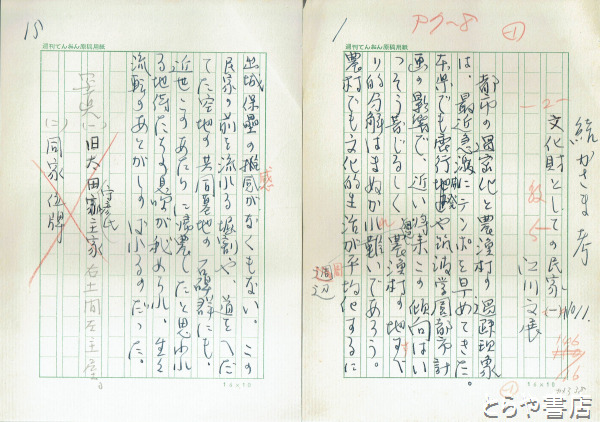 アク〜8
1
週刊てんおん原稿用紙
続かさま考
文化財としての民家(一)
江川文展
都市の過密化と農漁村の過疎現象
は、最近急激にテンポを早めてきた。
本県でも鹿行地帯や筑波学園都市計
画の影響で、近い将来この傾向はい
っそう著じるしく、農漁村の地すべ
り的分解はまぬかれ難いであろう。
農村でも文化的生活が平均化するに
週辺
14×10
15
週刊てんおん原稿用紙
出城保塁の推感がなくもない。この
民家の前を流れる堀割や、道をへだ
てた空地の共同墓地の石碑群にも、
近世このあたりに帰農したと思われ
る地侍たちの息吹が秘められ、生々
流転のあとがしのばれるのだった。
写真(一)旧太田家主家 右土間左主屋。
(二)同家位牌
14×10
とらや書店